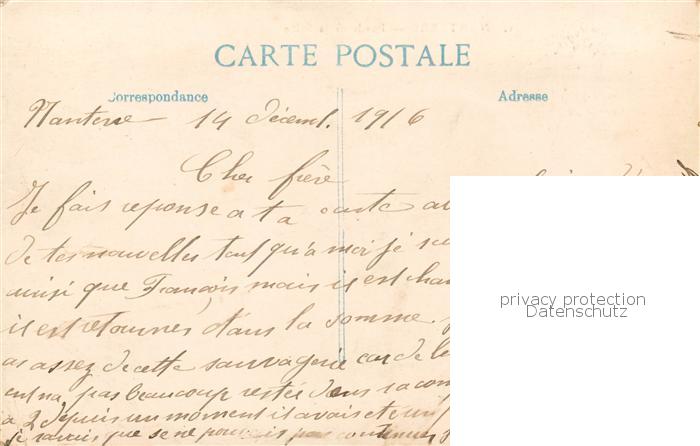 CARTE POSTALE
Correspondance
Adresse
Nanterre 14 décemb. 1916
Cher frère
Je fais reponse a ta carte
de tes nouvelles tant qu'a moi je
ainsi que François mais il est
il est retournés dans la somme.
as assez de cette sauvagerie car de
pas beaucoup restée dans sa
a 2 depuis un moment il avais
je que se ne pas
privacy protection
Datenschutz